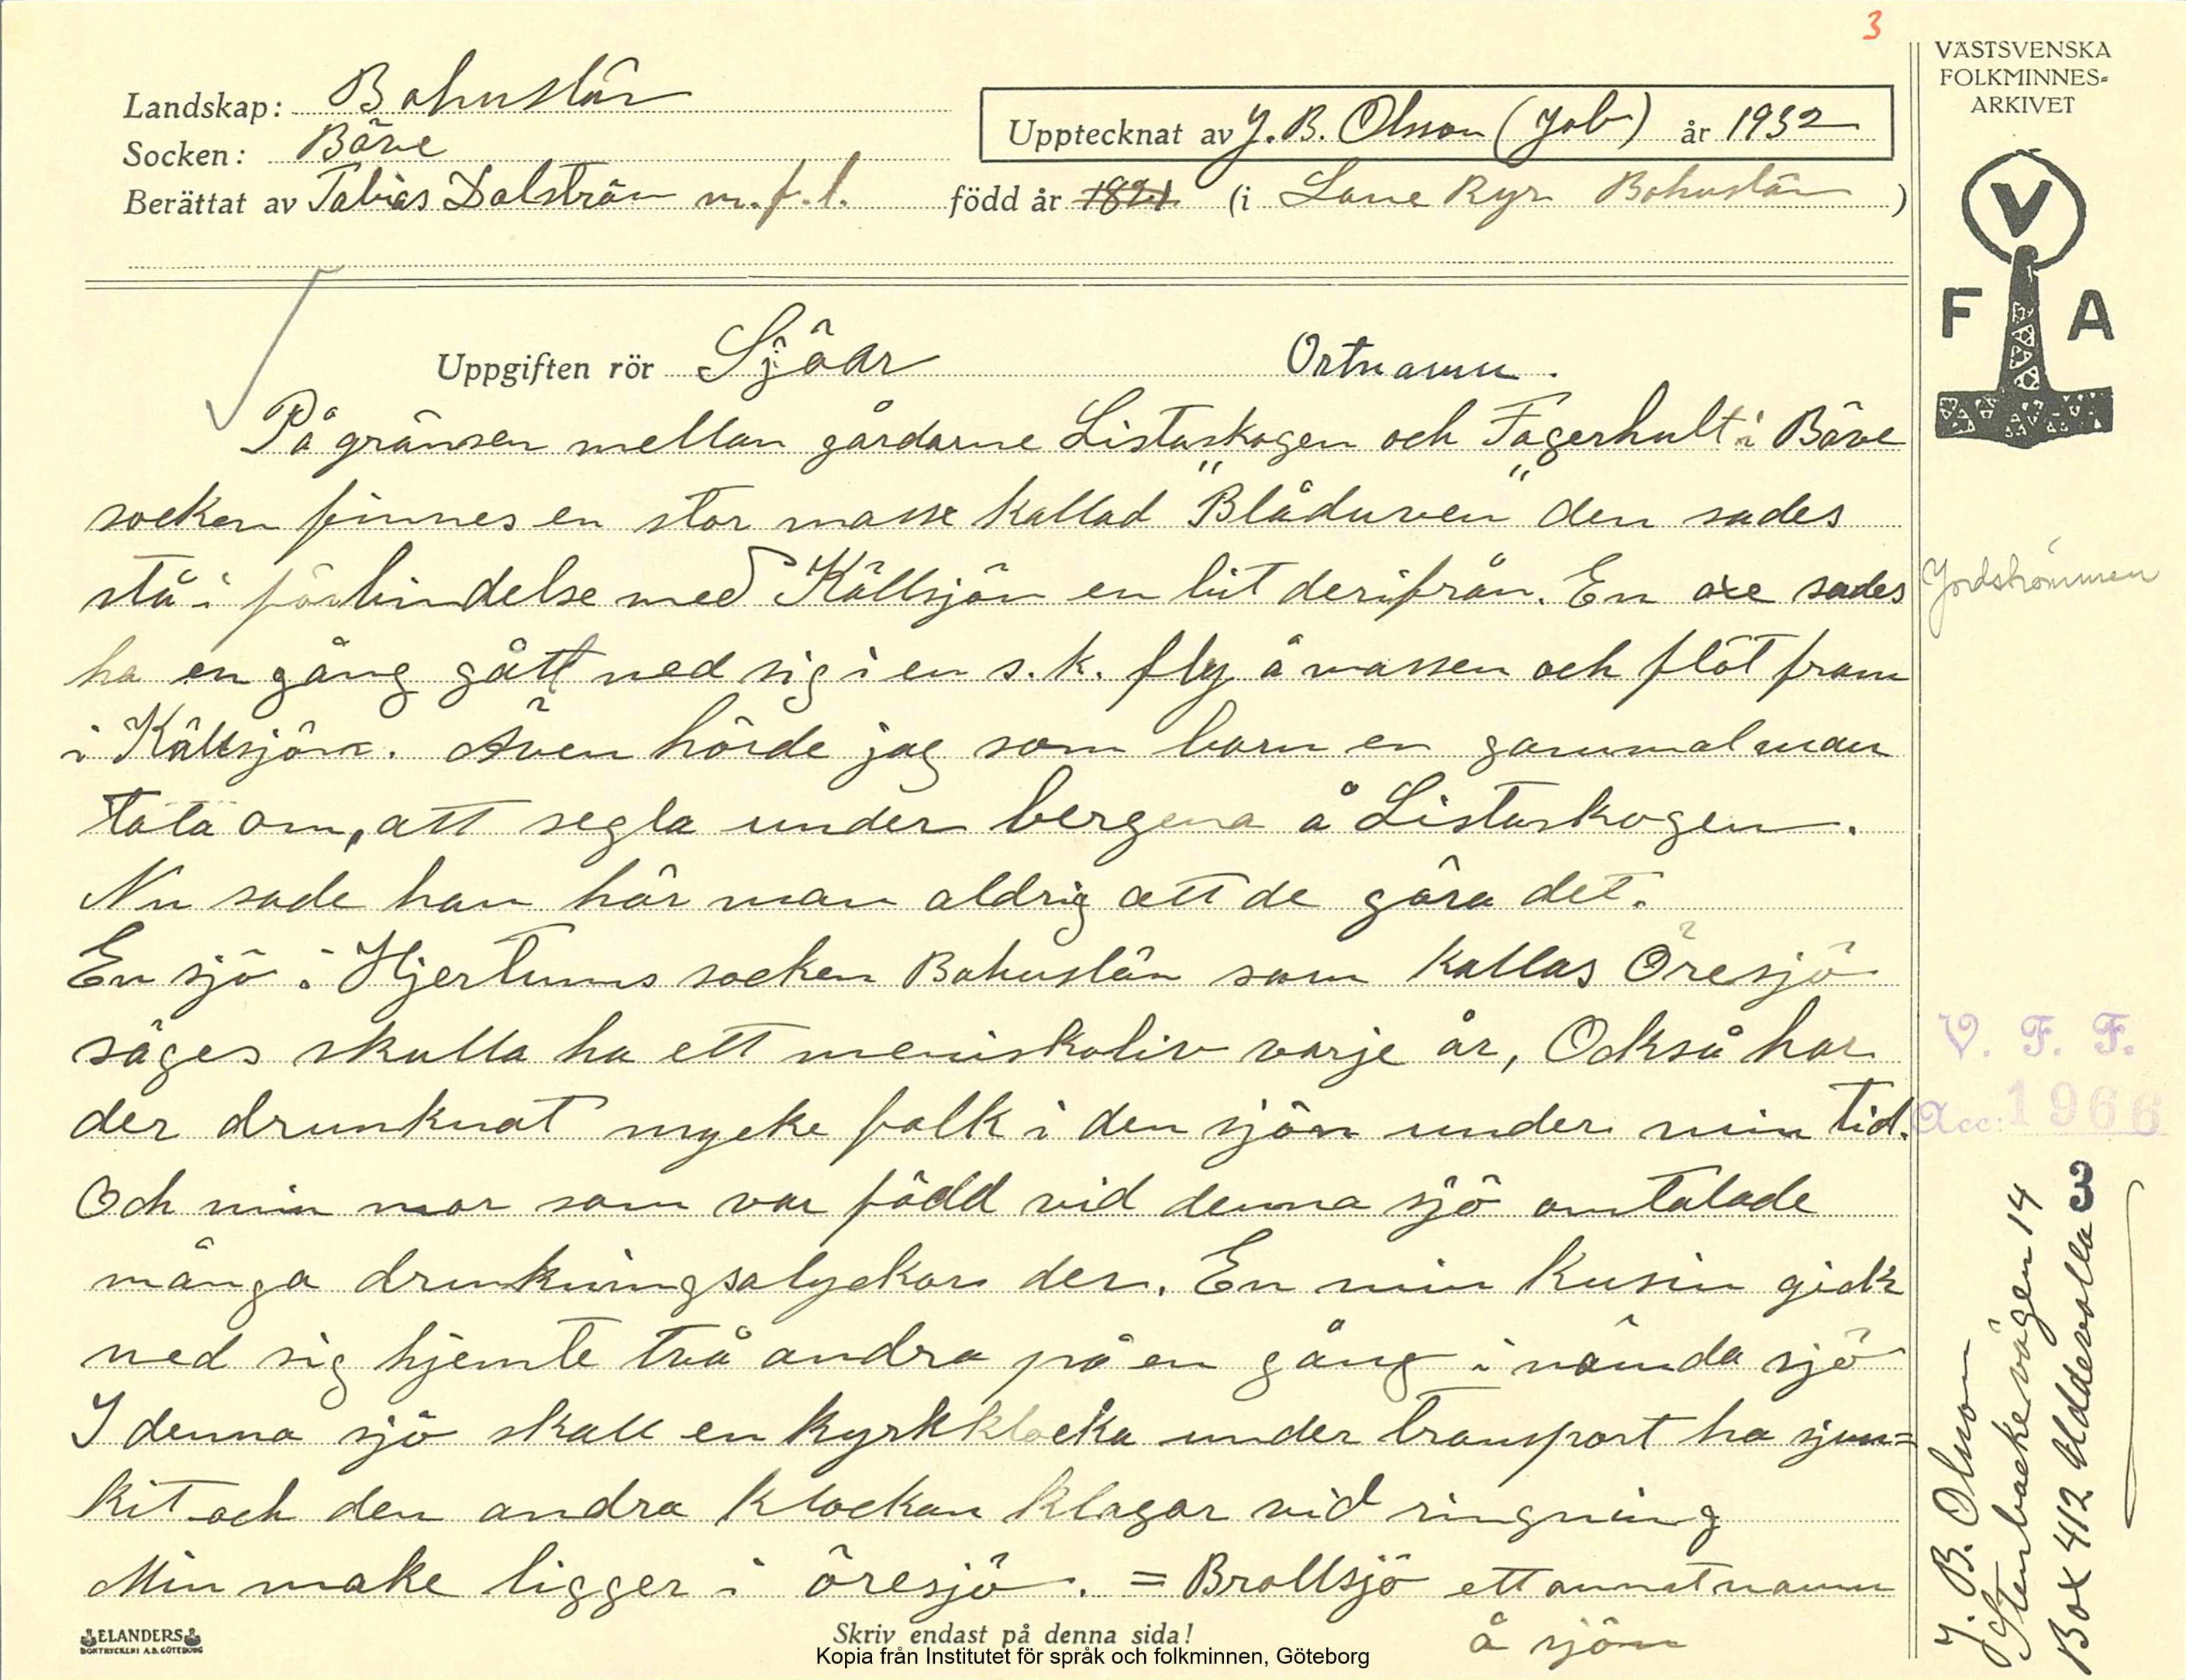 3
VÄSTSVENSKA
FOLKMINNES-
ARKIVET
Landskap: Bohuslän
Socken: Bäve
Upptecknat av J. B. Olsson (Job) år 1932
Berättat av Tobias Dalström m.fl. född år 1821 (i Lane Ryr Bohuslän)
V
F A
Uppgiften rör Sjöar Ortnamn.
På gränsen mellan gårdarne Listaskogen och Fagerhult i Bäve
socken finnes en stor masse kallad "Blåduven" den sades
stå i förbindelse med Källsjön en bit derifrån. En oxe sades
ha en gång gått ned sig i en s.k. fly å massen och flöt fram
i Källsjön. Även hörde jag som barn en gammal man
tala om, att segla under bergena å Listaskogen.
Nu sade han hör man aldrig att de göra det.
En sjö i Hjertums socken Bohuslän som kallas Öresjö
säges skulla ha ett meniskoliv varje år, Också har
der drunknat mycke folk i den sjön under min tid.
Och min mor som var född vid denna sjö omtalade
många drunkningsolyckor der. En min kusin gick
ned sig hjemte två andra på en gång i nämda sjö
I denna sjö skall en kyrkklocka under transport ha sjun=
kit och den andra klockan klagar vid ringning
Min make ligger i öresjö. = Brollsjö ett annat namn
å sjön
Jordströmmen
V. F. F.
Acc: 1966
J. B. Olsson
Stenbackevägen 14
Box 412 Uddevalla 3
ELANDERS
BOKTRYCKERI A.B. GÖTEBORG
Skriv endast på denna sida!
Kopia från Institutet för språk och folkminnen, Göteborg